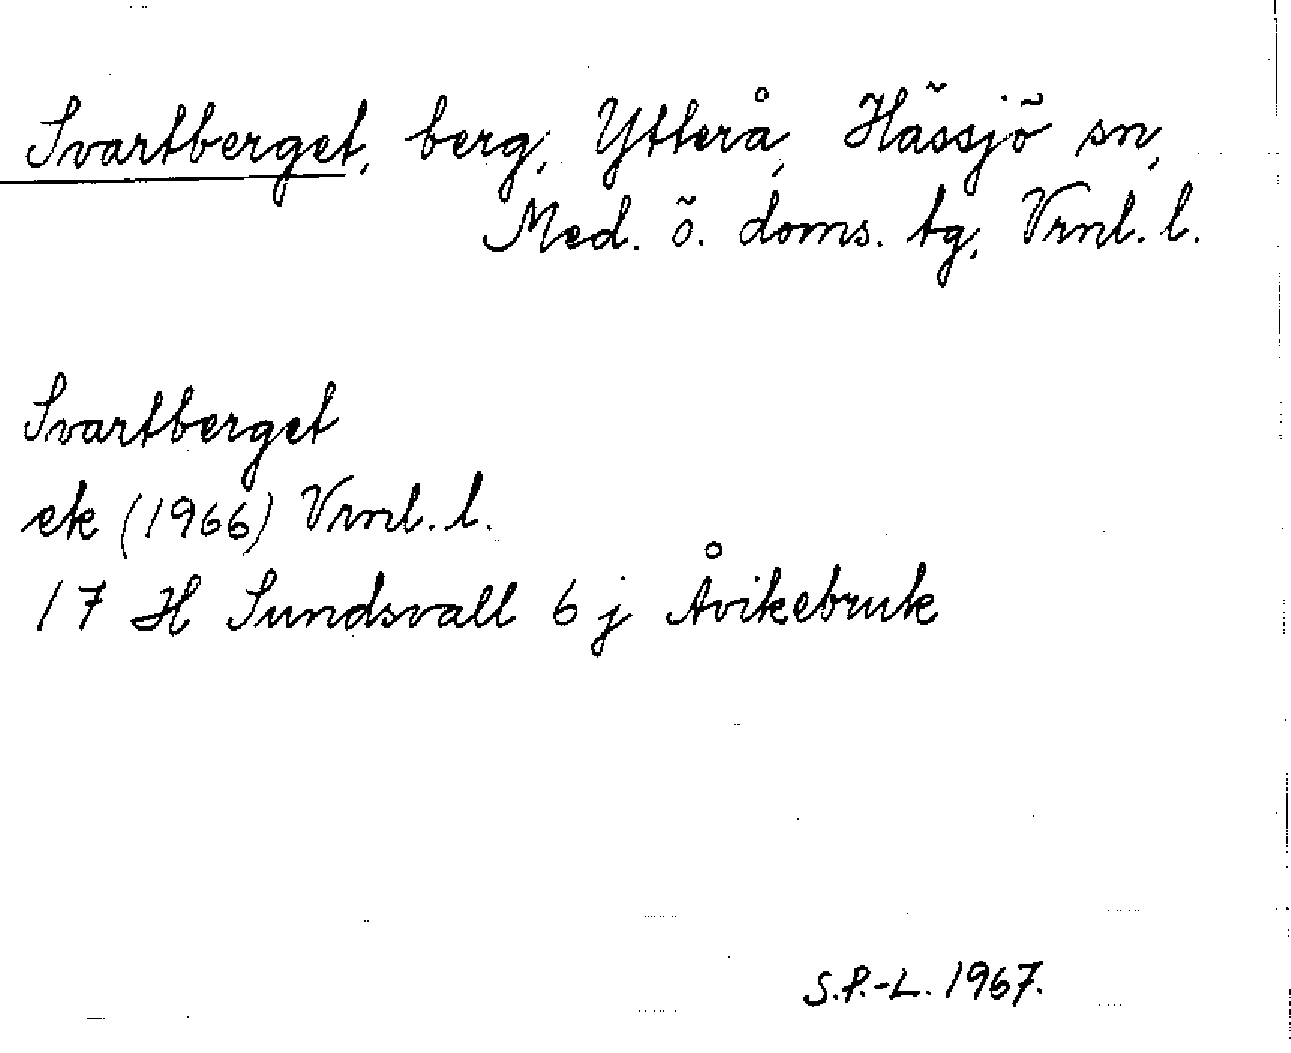 Svartberget, berg, Ytterå, Hässjö sn,
Med. ö. doms. tg, Vrnl. l.
Svartberget
ek (1966) Vrnl. l.
17 H Sundsvall 6 j Åvikebruk
S.P.-L. 1967.